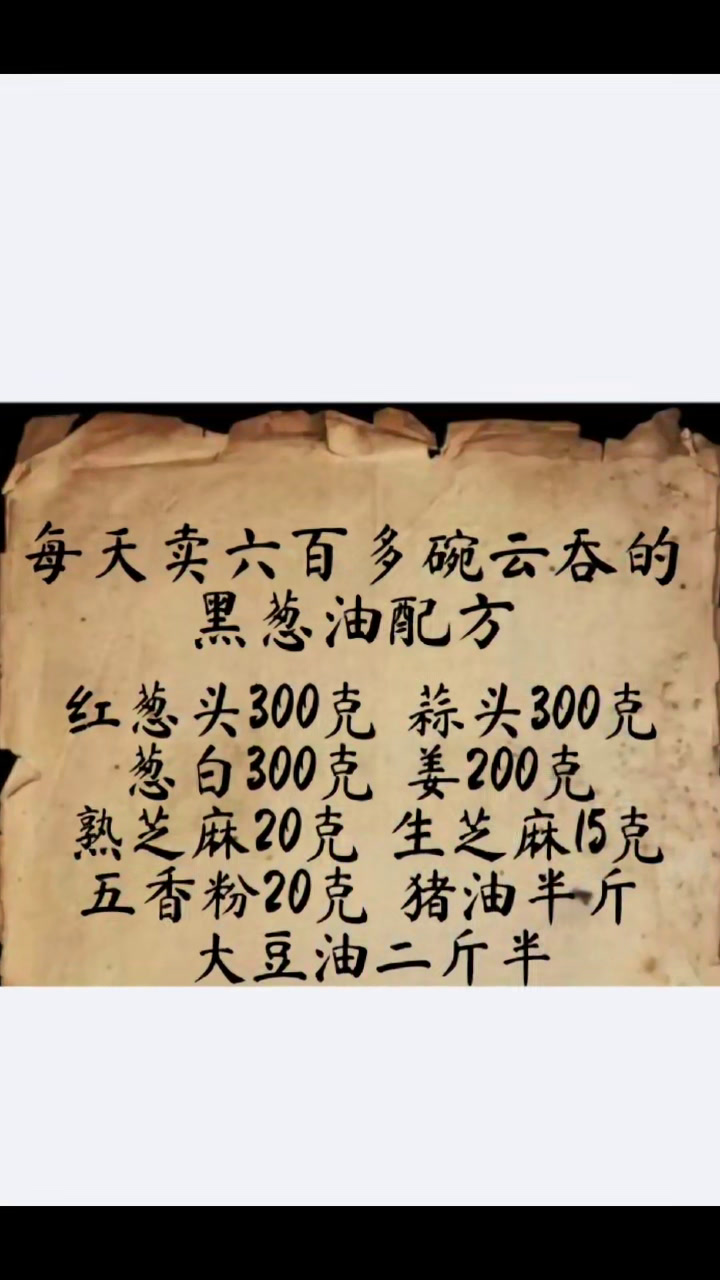 每天卖六百多碗云吞的
黑葱油配方
红葱头300克 蒜头300克
葱白300克 姜200克
熟芝麻20克 生芝麻15克
五香粉20克 猪油半斤
大豆油二斤半